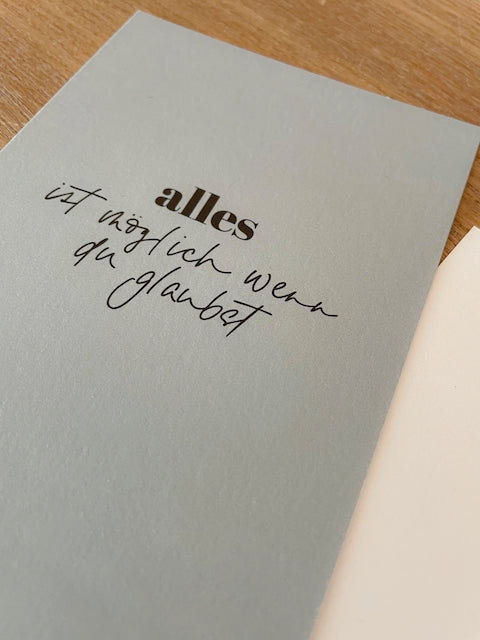 alles
ist möglich wenn
du glaubst